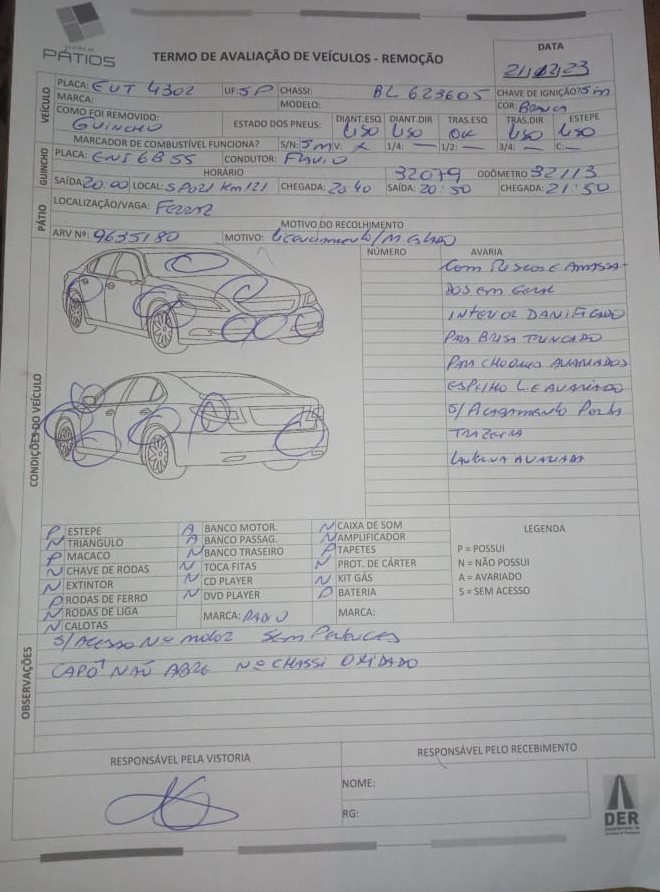 PÁTIOS
TERMO DE AVALIAÇÃO DE VEÍCULOS - REMOÇÃO
DATA
21/12/23
VEÍCULO
PLACA: EUT 4302 UF: SP CHASSI: BL 623605 CHAVE DE IGNIÇÃO: Sim
MARCA: MODELO: COR: Branca
COMO FOI REMOVIDO: ESTADO DOS PNEUS: DIANT.ESQ DIANT.DIR TRAS.ESQ TRAS.DIR ESTEPE
GUINCHO LISO LISO OK LISO LISO
MARCADOR DE COMBUSTÍVEL FUNCIONA? S/N: Sim V: X 1/4: — 1/2: — 3/4: — C: —
GUINCHO
PLACA: ENI 6B55 CONDUTOR: FLAVIO
HORÁRIO 32079 ODÔMETRO 32113
SAÍDA: 20:00 LOCAL: SP021 Km 121 CHEGADA: 20 40 SAÍDA: 20:50 CHEGADA: 21:50
PÁTIO
LOCALIZAÇÃO/VAGA:
MOTIVO DO RECOLHIMENTO
ARV Nº: 9635180 MOTIVO: Licenciamento/M.
CONDIÇÕES DO VEÍCULO
NÚMERO AVARIA
Com Riscos E Amassa-
DOS em Geral
INTERIOR DANIFICADO
PARA BRISA TRINCADO
PARA CHOQUES AVARIADOS
ESPELHO LE AVARIADO
S/ Acabamento Porta
TRAZEIRA
LANTERNA AVARIADA
P ESTEPE
N TRIÂNGULO
P MACACO
N CHAVE DE RODAS
N EXTINTOR
P RODAS DE FERRO
N RODAS DE LIGA
N CALOTAS
A BANCO MOTOR.
A BANCO PASSAG.
N BANCO TRASEIRO
N TOCA FITAS
N CD PLAYER
N DVD PLAYER
MARCA: RADIO
N CAIXA DE SOM
N AMPLIFICADOR
P TAPETES
N PROT. DE CÁRTER
N KIT GÁS
P BATERIA
MARCA:
LEGENDA
P = POSSUI
N = NÃO POSSUI
A = AVARIADO
S = SEM ACESSO
OBSERVAÇÕES
S/ Acesso Nº motor Sem Pertences
CAPÔ NAÕ ABRE Nº CHASSI OXIDADO
RESPONSÁVEL PELA VISTORIA
RESPONSÁVEL PELO RECEBIMENTO
NOME:
RG:
DER